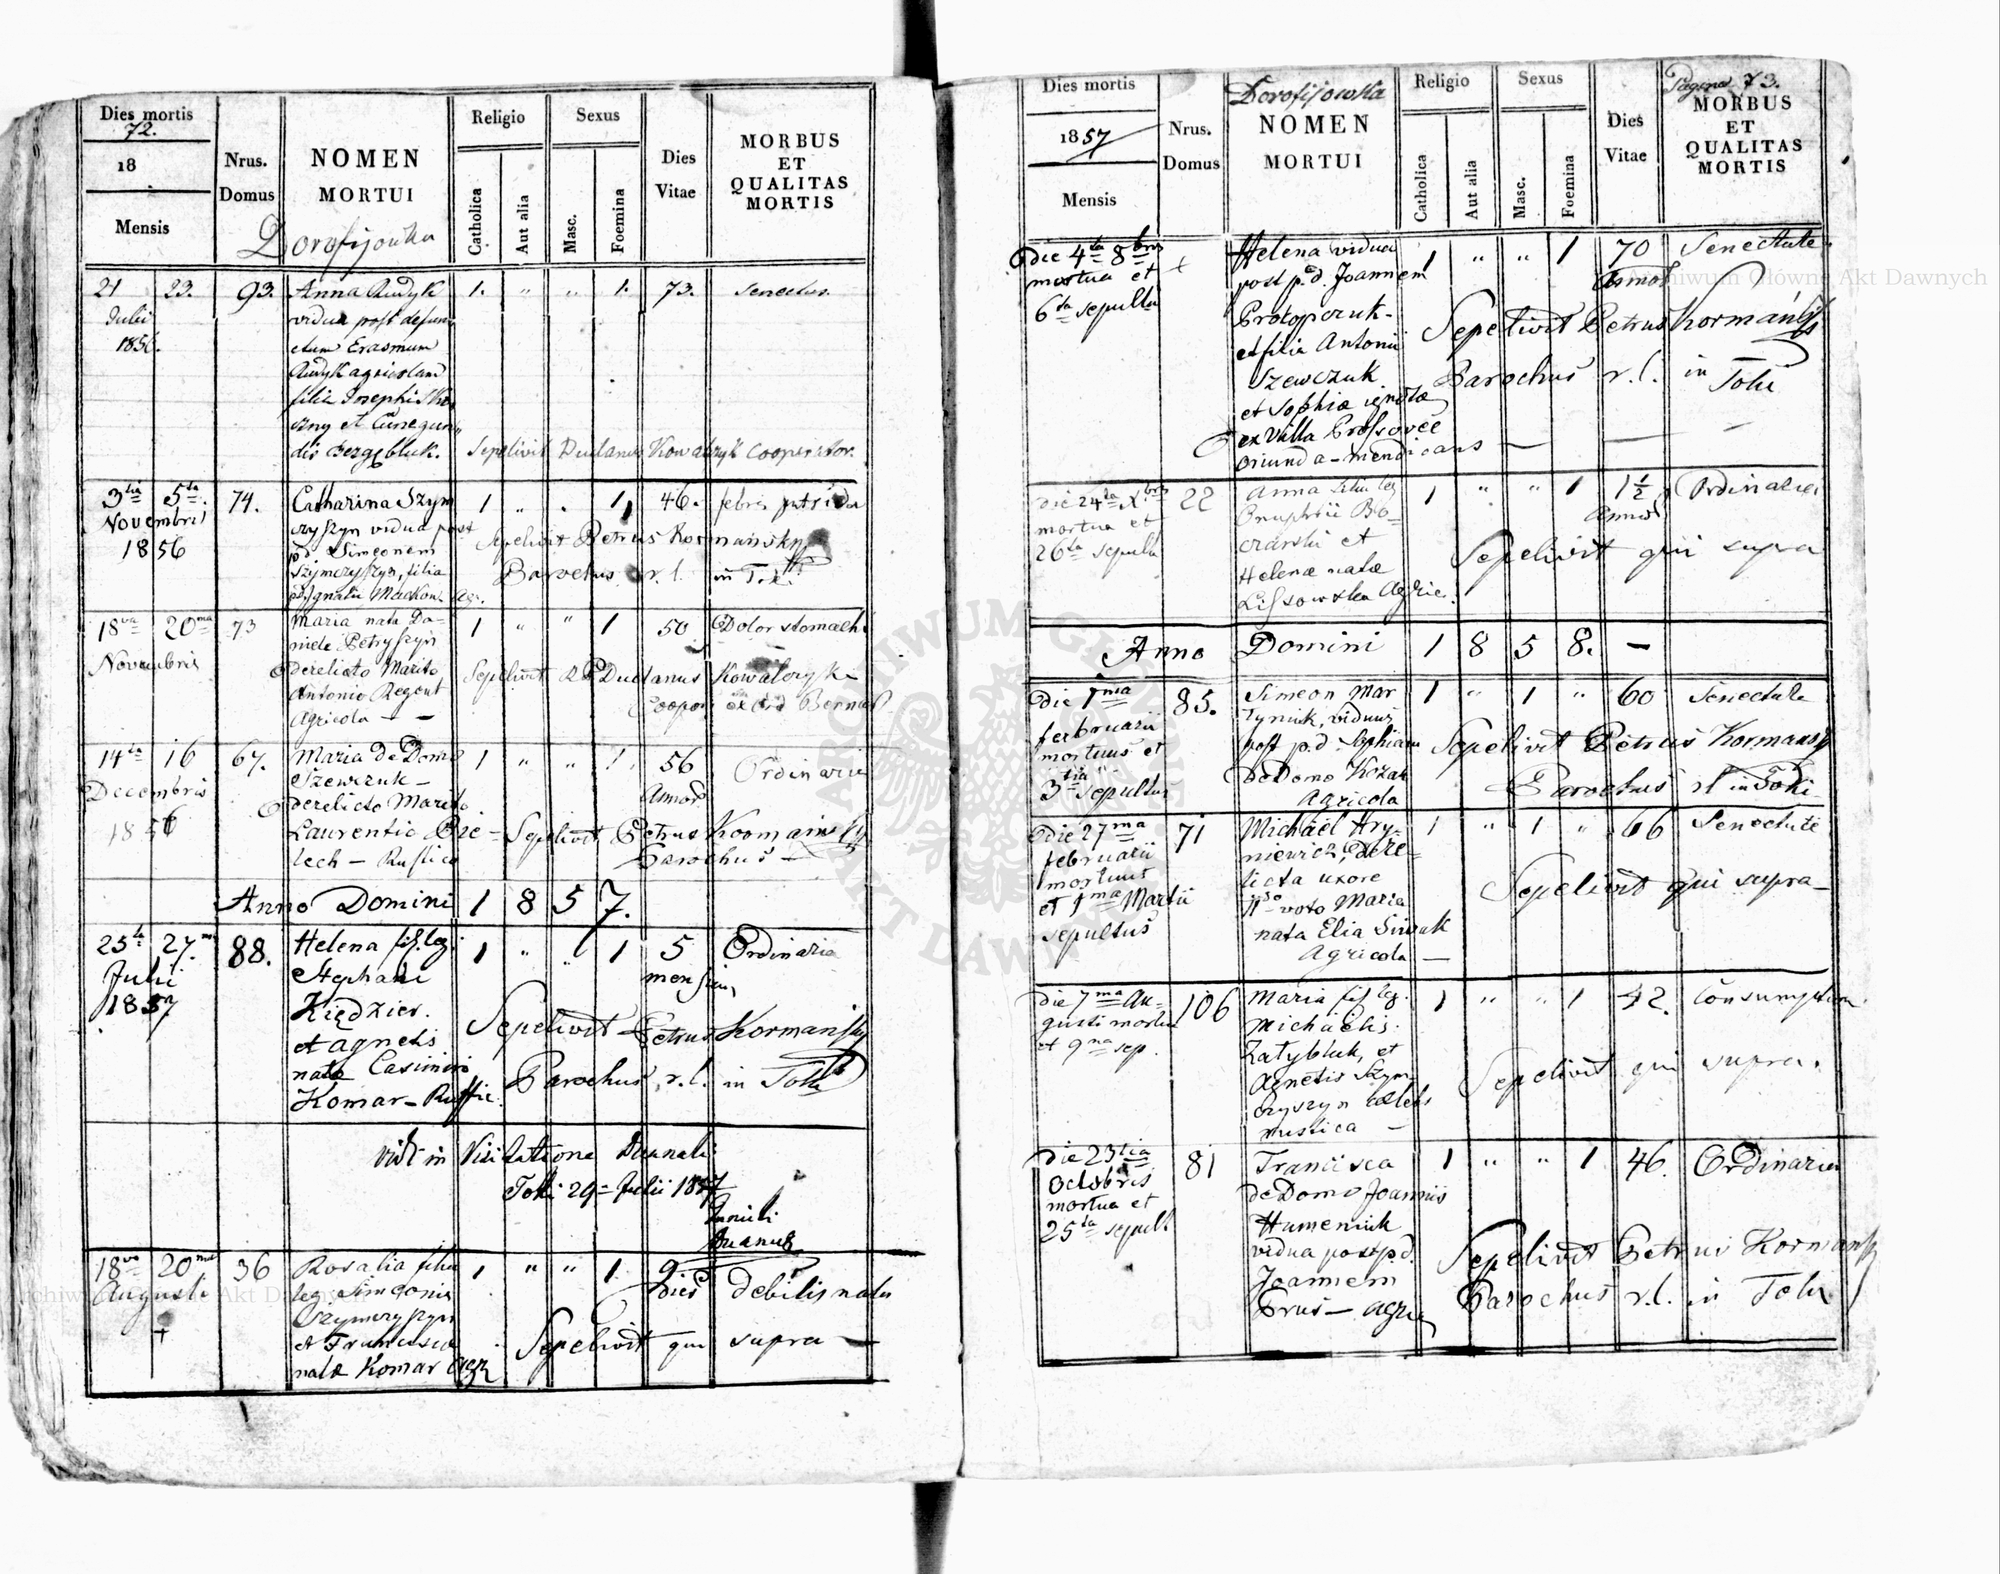 Dies mortis
72.
18
Mensis
Nrus.
Domus
NOMEN
MORTUI
Dorofijowka
Religio
Catholica
Aut alia
Sexus
Masc.
Foemina
Dies
Vitae
MORBUS
ET
QUALITAS
MORTIS
21 23. 93. Anna Rudyk 1. " " 1. 73. Senectus.
Julii vidua post defun
1856. ctum Erasmum
Rudyk agricolam
filia Josephi
et Cunegun
dis
Sepelivit Dudanus Kowalczyk Cooperator.
3tia 5ta 74. Catharina Szym 1 " . 1, 46. febris putrida
Novembris czyszyn vidua post
1856 p.d. Simeonem
Szymczyszyn, filia
Ignatii Mackow Agr.
Sepelivit Petrus Kormansky
Parochus r.l. in Toki
18va 20ma 73 Maria nata Da- 1 " " 1 50 Dolor stomachi
Novembris niele Petryszyn
derelicto Marito
Antonio Regent
Agricola — —
Sepelivit R P Dudanus Kowalczyk
Coopor ex Ord Bernard
14ta 16 67. Maria de Domo 1 " " 1 56 Ordinaria
Decembris Szewczuk — Annor
1856 derelicto Marito
Laurentio Bie-
lech — Rustico
Sepelivit Petrus Kormansky
Parochus —
Anno Domini 1 8 5 7.
25ta 27ma 88. Helena fil. leg. 1 " " 1 5 Ordinaria
Julii Stephani mensium
1857 Kiędzier.
et Agnetis
nata Casimiro
Komar — Rustic.
Sepelivit Petrus Kormansky
Parochus r.l. in Toki
Vidi in Visitatione Decanali
Toki 29 Julii 1857
Decanus
18va 20ma 36 Rosalia filia 1 " " 1. 9 debilis nata
Augusti leg. Simeonis Dies
+ Szymczyszyn
et Francisca
nata Komar Agr
Sepelivit qui supra —
Dies mortis
1857
Mensis
Nrus.
Domus
Dorofijowka
NOMEN
MORTUI
Religio
Catholica
Aut alia
Sexus
Masc.
Foemina
Dies
Vitae
Pagina 73.
MORBUS
ET
QUALITAS
MORTIS
Die 4ta 8bris + Helena vidua 1 " " 1 70 Senectute
mortua et post p.d. Joannem Annor
6ta sepulta Protopczuk-
et filia Antonii
Szewczuk
et Sophiæ
ex Villa
oriunda — mendicans — — —
Sepelivit Petrus Kormansky
Parochus r.l. in Toki
Die 24ta X.bris 22 Anna filia leg 1 " " 1 1½ Ordinaria
mortua et Onuphrii Bo- Annor
26ta sepulta czarski et
Helenæ natæ
Lissowska Agric.
Sepelivit qui supra
Anno Domini 1 8 5 8. —
Die 1ma 85. Simeon Mar 1 " 1 " 60 Senectute
februarii tyniuk, viduus
mortuus et post p.d. Sophiam
3tia sepultus De Domo Kozak
Agricola
Sepelivit Petrus Kormansky
Parochus rl in Toki
Die 27ma 71 Michael Hry- 1 " 1 " 66 Senectute
februarii niewicz, dere-
mortuus licta uxore
et 1ma Martii voto Maria
sepultus nata Elia Siwak
Agricola —
Sepelivit qui supra —
Die 7ma Au- 106 Maria fil leg. 1 " " 1 42. Consumption
gusti mortua Michaelis
et 9na sep. Zatybluk, et
Agnetis Szym
czyszyn cælebs
rustica —
Sepelivit qui supra.
Die 23tia 81 Francisca 1 " " 1 46. Ordinaria
Octobris de Domo Joannis
mortua et Humeniuk
25ta sepult vidua post p.d.
Joannem
Prus — agric
Sepelivit Petrus Kormansky
Parochus r.l. in Toki
Archiwum Główne Akt Dawnych
ARCHIWUM GŁÓWNE AKT DAWNYCH